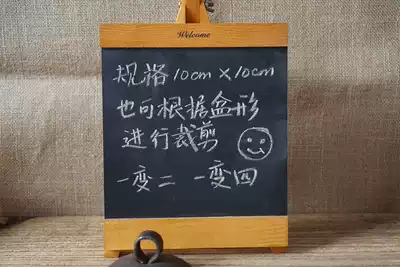 Welcome
规格10cm×10cm
也可根据盒形
进行裁剪
一变二 一变四